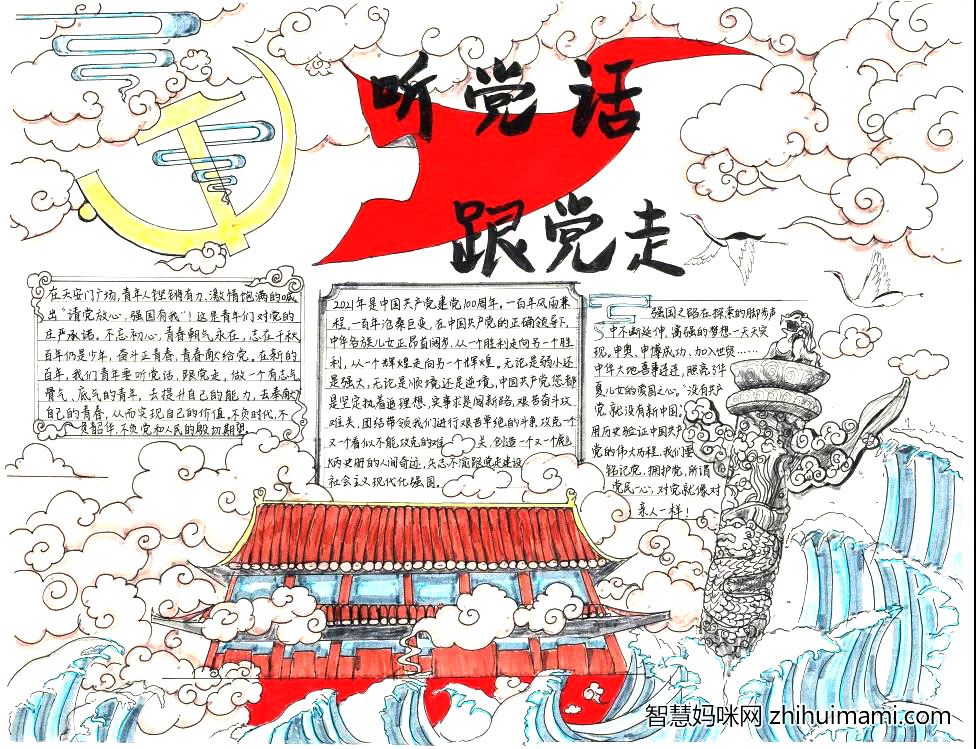 听党话
跟党走
在天安门广场,青年人铿锵有力,激情饱满的喊
出“请党放心,强国有我”!这是青年们对党的
庄严承诺。不忘初心,青春朝气永在,志在千秋
百年仍是少年,奋斗正青春,青春献给党。在新的
百年,我们青年要听党话,跟党走,做一个有志气
骨气、底气的青年,去提升自己的能力,去奉献
自己的青春,从而实现自己的价值,不负时代,不
负韶华,不负党和人民的殷切期望。
2021年是中国共产党建党100周年。一百年风雨兼
程,一百年沧桑巨变,在中国共产党的正确领导下,
中华各族儿女正昂首阔步,从一个胜利走向另一个胜
利,从一个辉煌走向另一个辉煌。无论是弱小还
是强大,无论是顺境还是逆境,中国共产党总都
是坚定执着追理想,实事求是闯新路,艰苦奋斗攻
难关,团结带领我们进行艰苦卓绝的斗争,攻克一个
又一个看似不能攻克的难关,创造一个又一个彪
炳史册的人间奇迹,矢志不渝跟党走建设
社会主义现代化强国。
强国之路在探索的脚步声
中不断延伸,富强的梦想一天天实
现。申奥、申博成功,加入世贸……
中华大地喜事连连,照亮了华
夏儿女的爱国之心。“没有共产
党就没有新中国。”
用历史验证中国共产
党的伟大历程,我们要
铭记党,拥护党,所谓
党民一心,对党就像对
亲人一样!
智慧妈咪网 zhihuimami.com